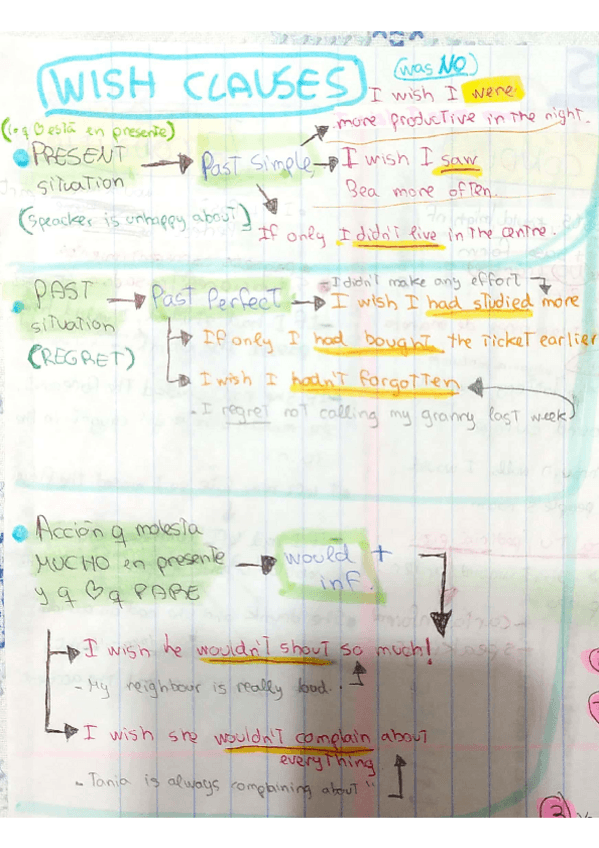 WISH CLAUSES
(was NO)
I wish I were
more productive in the night.
(lo q ♡ está en presente)
PRESENT → Past simple → I wish I saw
situation
Bea more often...
(speacker is unhappy about)
If only I didn't live in the centre.
- I didn't make any effort
PAST → Past Perfect → I wish I had studied more
situation
(REGRET)
If only I had bought the ticket earlier
I wish I hadn't forgotten
- I regret not calling my granny last week
Acción q molesta
MUCHO en presente → would +
y q ♡ q PARE
inf.
I wish he wouldn't shout so much!
- My neighbour is really loud..
I wish she wouldn't complain about
everything
- Tania is always complaining about "
3